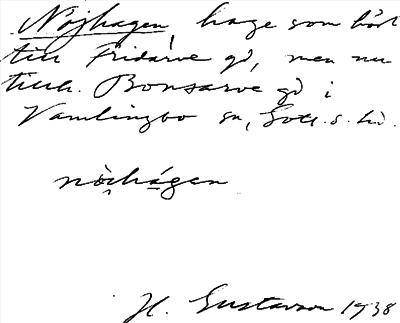 Nöjhagen, hage som hört
till Fridarve gd, men nu
tillh. Bonsarve gd i
Vamlingbo sn, Gotl. s. hd.
nö̀i̯hágen
H. Gustavson 1938